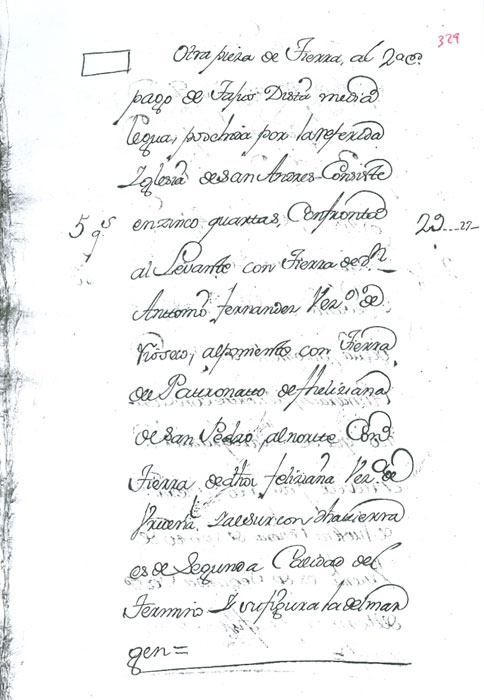 329
Otra pieza de Tierra, al
pago de Tapias Dista media
legua, posehida por la referida
Iglesia de san Andres Consiste
5 q.s en zinco quartas, Confronta 29...22
al Levante con Tierra de D.n
Antonio fernandez Vez.o de
Rioseco, al poniente con Tierra
de Patronatto de fheliziana
de san Pedro al norte Con
Tierra de dha feliziana Vez.a de
Y al sur con dha tierra
es de Segunda Calidad del
Termino Y su figura la del mar
gen=